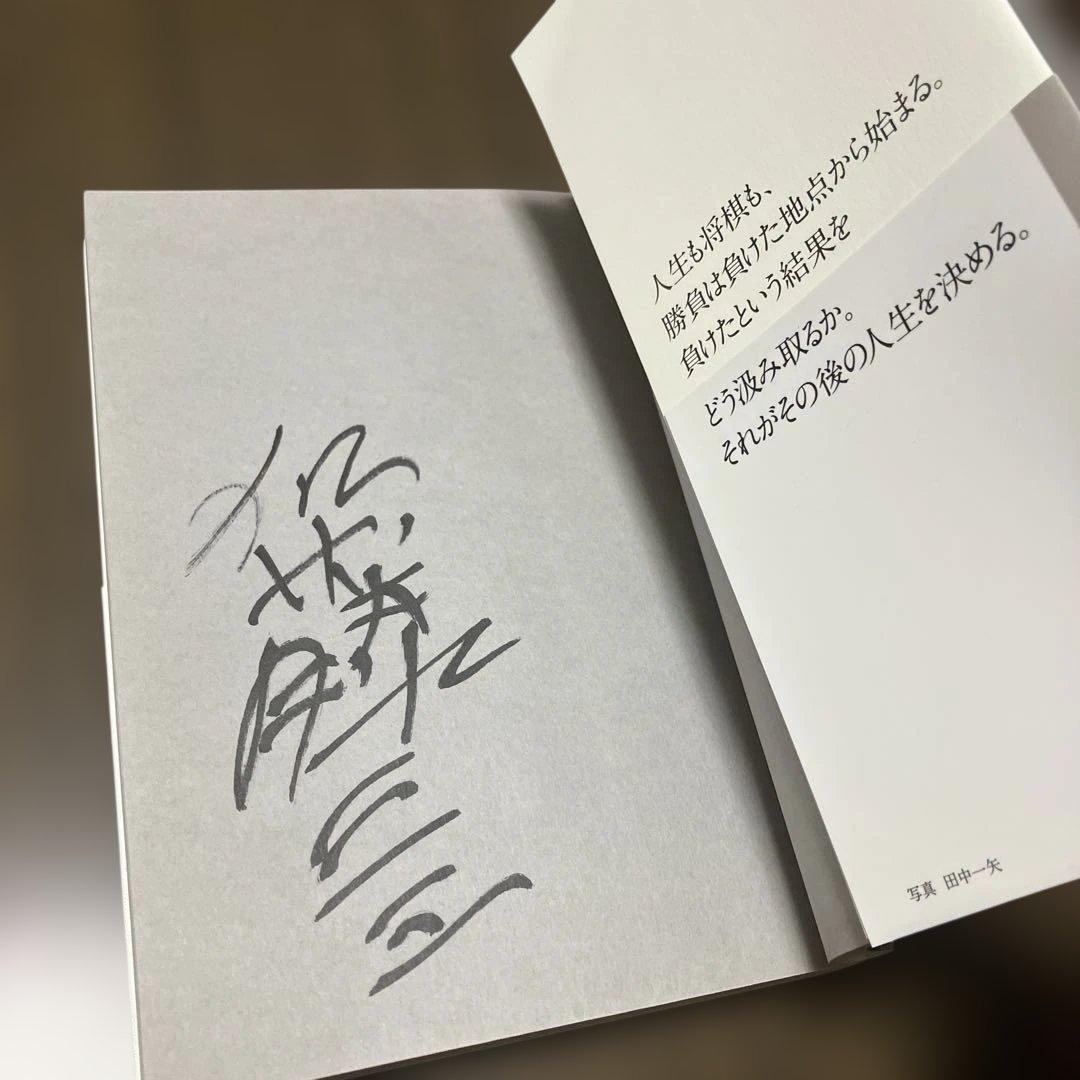 人生も将棋も、
勝負は負けた地点から始まる。
負けたという結果を
どう汲み取るか。
それがその後の人生を決める。
写真 田中一矢